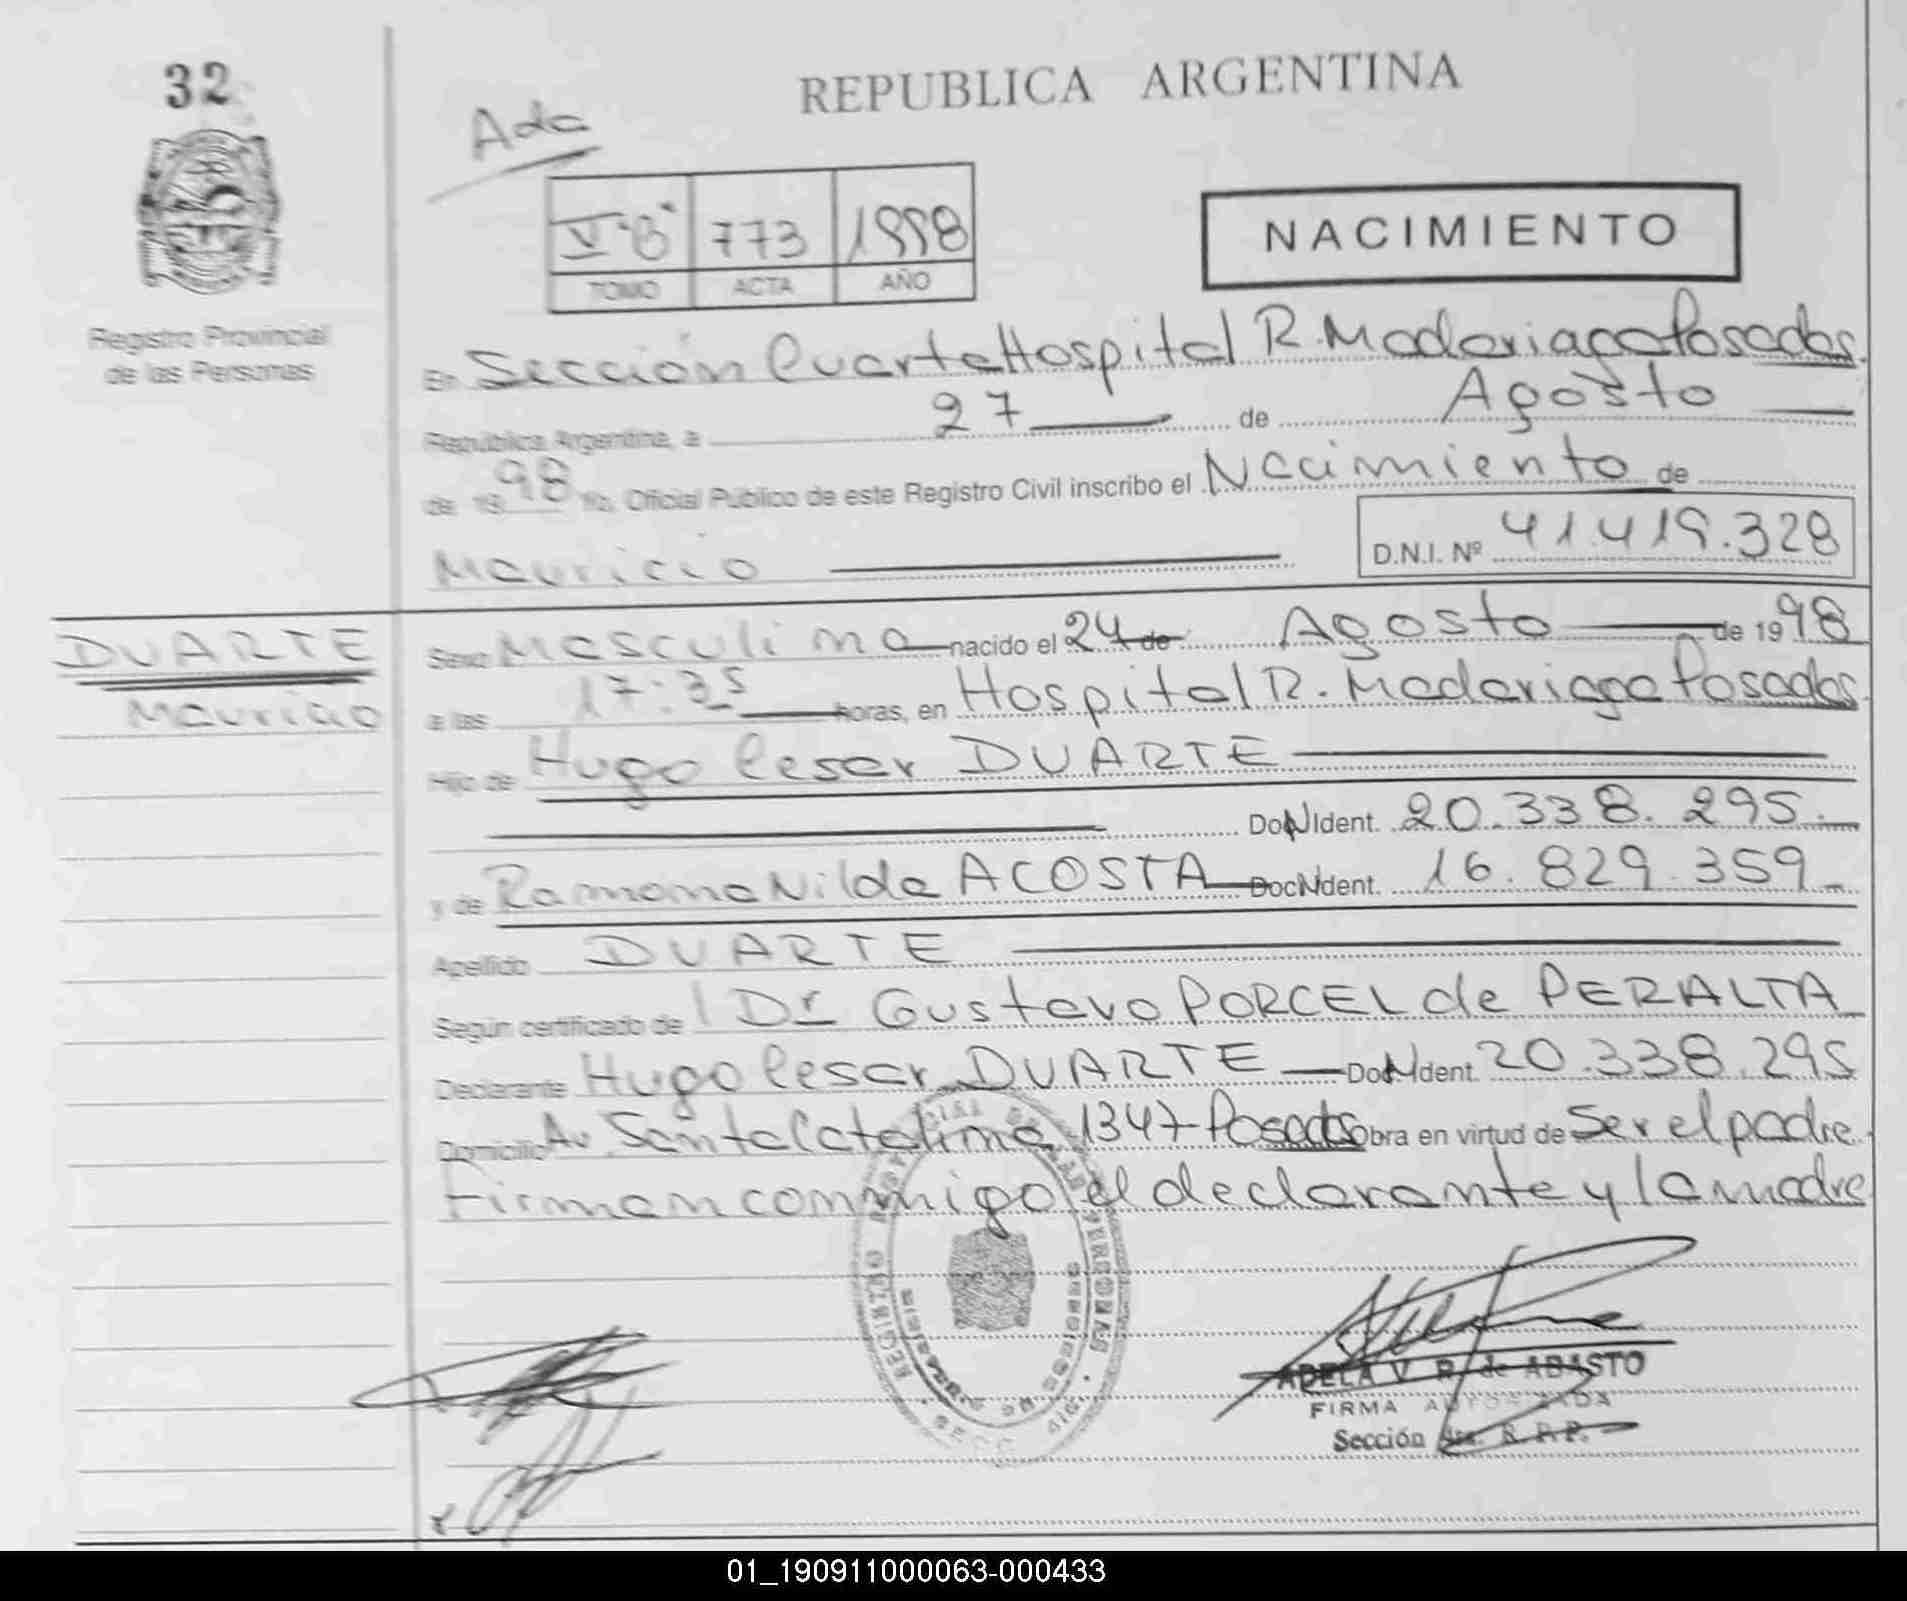 32
REPUBLICA ARGENTINA
Ada
V "B" 773 1998
TOMO ACTA AÑO
NACIMIENTO
Registro Provincial
de las Personas
En Sección Cuarta Hospital R. Madariaga Posadas.
República Argentina, a 27 de Agosto
de 1998 Yo, Oficial Público de este Registro Civil inscribo el Nacimiento de
Mauricio
D.N.I. Nº 41.419.328
DUARTE
Mauricio
Sexo Masculino nacido el 24 de Agosto de 1998
a las 17:35 horas, en Hospital R. Madariaga Posadas.
Hijo de Hugo Cesar DUARTE
Doc. Ident. 20.338.295.
y de Ramona Nilda ACOSTA Doc. Ident. 16.829.359
Apellido DUARTE
Según certificado de Dr Gustavo PORCEL de PERALTA
Declarante Hugo Cesar DUARTE Doc. Ident. 20.338.295
Domicilio Av. Santa Catalina 1347 Posadas obra en virtud de Ser el padre
Firman conmigo el declarante y la madre
REGISTRO PERSONAS
ADELA V. R. de ABASTO
FIRMA AUTORIZADA
Sección 4ta. R.P.P.
01_190911000063-000433